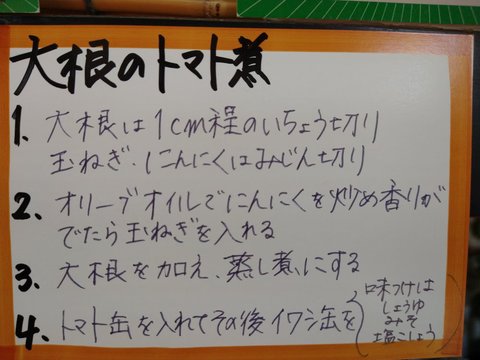 大根のトマト煮
1. 大根は1cm程のいちょう切り
玉ねぎ、にんにくはみじん切り
2. オリーブオイルでにんにくを炒め香りが
でたら玉ねぎを入れる
3. 大根を加え、蒸し煮にする
4. トマト缶を入れてその後イワシ缶を
(味つけは
しょうゆ
みそ
塩こしょう)